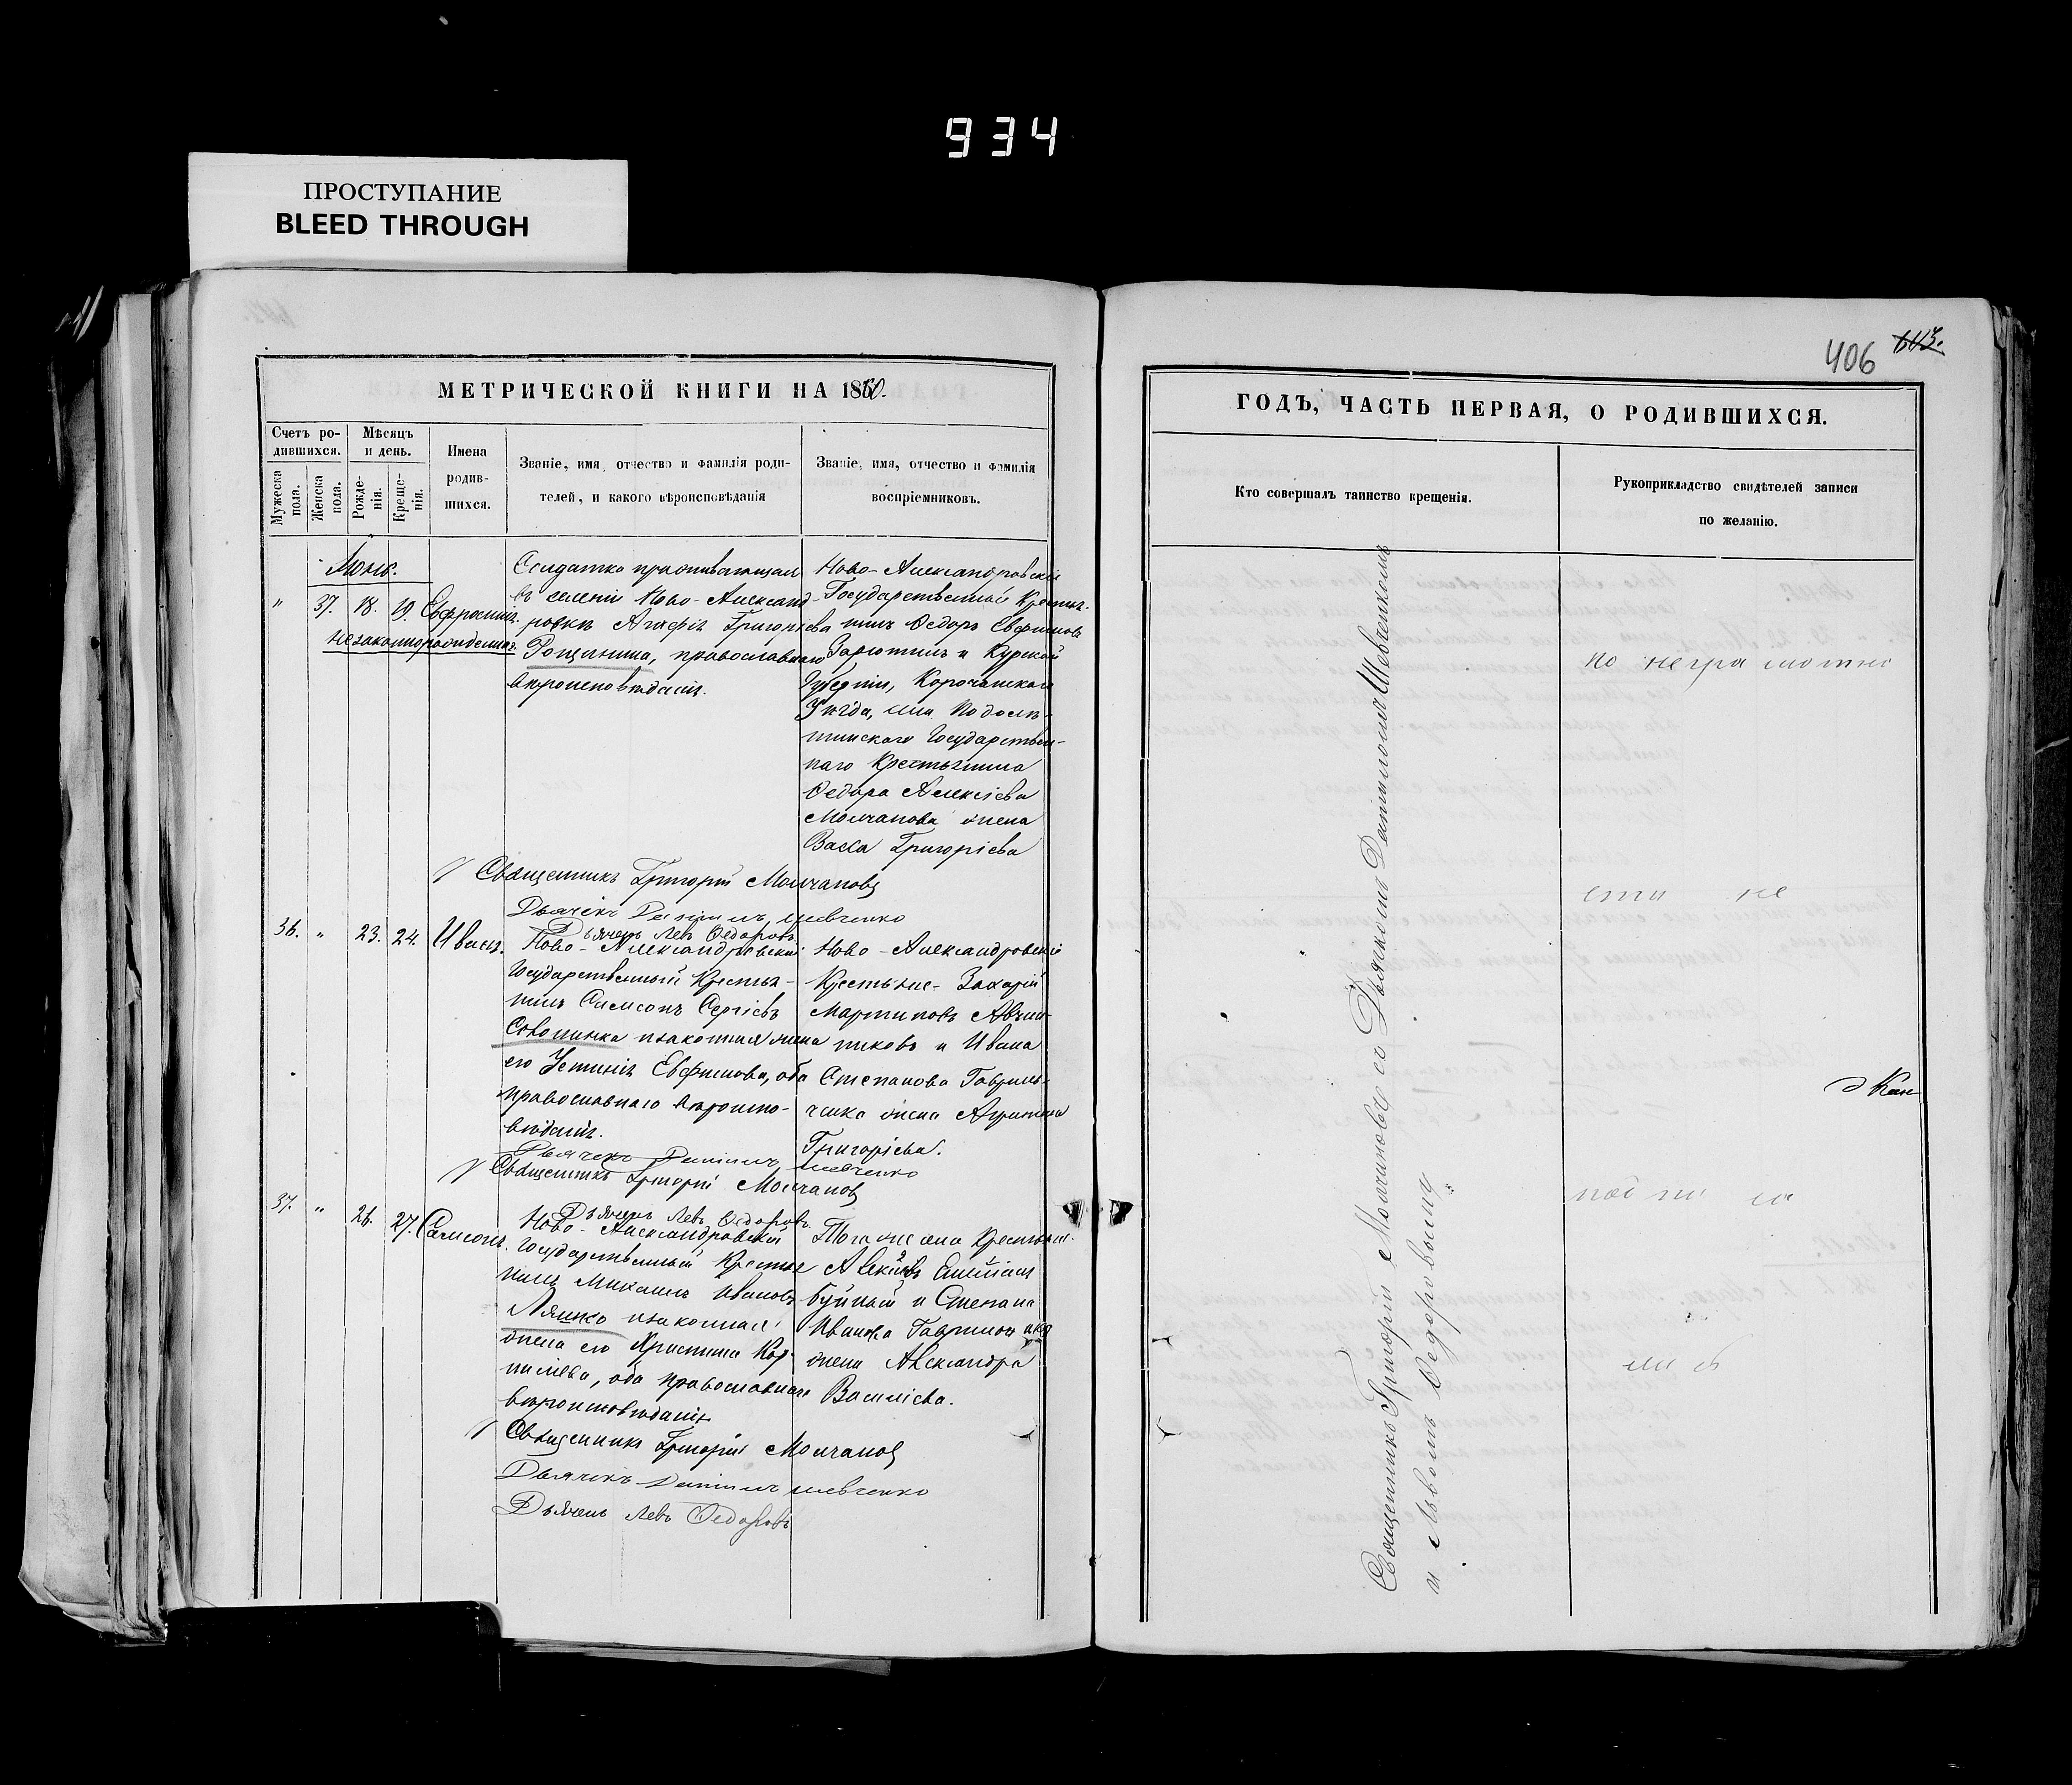 934
ПРОСТУПАНИЕ
BLEED THROUGH
МЕТРИЧЕСКОЙ КНИГИ НА 1860.
Счетъ родившихся.
Мѣсяцъ и день.
Имена родившихся.
Званіе, имя, отчество и фамилія родителей, и какого вѣроисповѣданія
Званіе, имя, отчество и фамилія воспріемниковъ.
Мужеска пола.
Женска пола.
Рожденія.
Крещенія.
„ 37. 18. 19.
незаконнорожденная.
Солдатка проживающая
въ селеніи Ново-Александ-
ровкѣ Агафія Григоріева
Рощупкина, православнаго
вѣроисповѣданія.
Ново-Александровскій
Государственный Крестья-
нинъ Ѳедоръ Евфимовъ
и Курской
Губерніи, Корочанскаго
Уѣзда,
Государствен-
наго Крестьянина
Ѳедора Алексіева
Молчанова жена
Васса Григоріева
Священникъ Григорій Молчановъ
Дьячекъ Даніилъ Шевченко
Дьячекъ Левъ Ѳедоровъ
36. „ 23. 24. Иванъ.
Ново-Александровскій
Государственный Крестья-
нинъ Самсонъ Сергіевъ
изаконная жена
его Устинія Евфимова, оба
православнаго вѣроиспо-
вѣданія.
Ново-Александровскіе
Крестьяне Захарій
Мартиновъ Авчин-
никовъ и Ивана
Степанова Гавриль-
ченка жена
Григоріева.
Дьячекъ Даніилъ Шевченко
Священникъ Григорій Молчановъ
Дьячекъ Левъ Ѳедоровъ
37. „ 26. 27. Самсонъ.
Ново-Александровскій
Государственный Крестья
нинъ Михаилъ Ивановъ
Ляшко изаконная
жена его Христина Кор-
ниліева, оба православнаго
вѣроисповѣданія
Тогоже села Крестьян.
Буйный и Степана
Иванова
жена Александра
Василіева.
Священникъ Григорій Молчановъ
Дьячекъ Даніилъ Шевченко
Дьячекъ Левъ Ѳедоровъ
406
ГОДЪ, ЧАСТЬ ПЕРВАЯ, О РОДИВШИХСЯ.
Кто совершалъ таинство крещенія.
Рукоприкладство свидѣтелей записи по желанію.
Священникъ Григорій Молчановъ со Дьячкомъ Даніиломъ Шевченкомъ
и Львомъ Ѳедоровымъ
по неграмотно
сти не